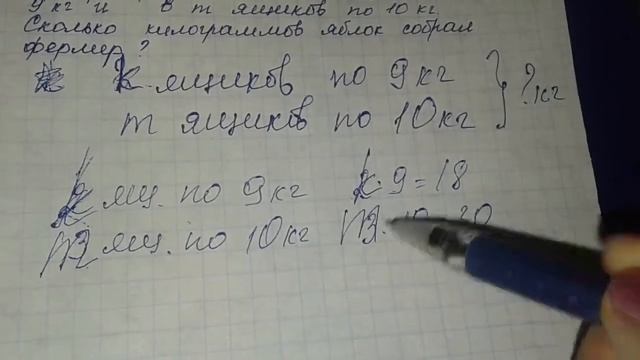 9 кг и в m ящиков по 10 кг
Сколько килограммов яблок собрал
фермер?
k ящиков по 9 кг
m ящиков по 10 кг } ? кг
ящ. по 9 кг · 9 = 18
ящ. по 10 кг